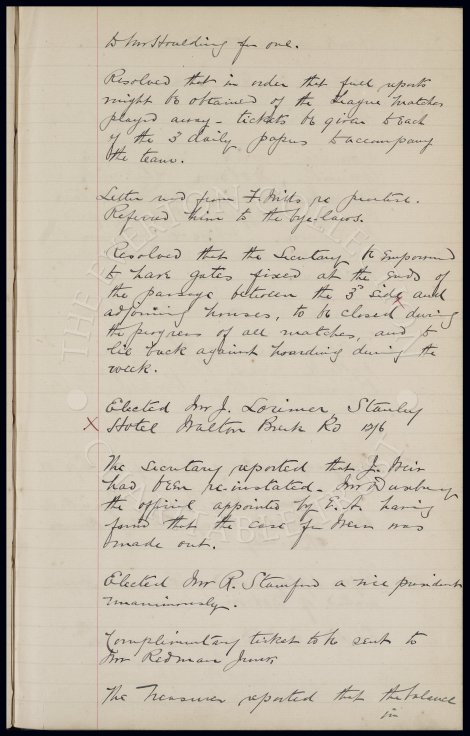 to Mr Houlding for one.
Resolved that in order that full reports
might be obtained of the League Matches
played away - tickets be given to each
of the 3 daily papers to accompany
the team.
Letter read from F Wills re practise.
Referred him to the bye-laws.
Resolved that the Secretary be empowered
to have gates fixed at the ends of
the passage between the 3d side and
adjoining houses, to be closed during
the progress of all matches, and to
lie back against hoarding during the
week.
Elected Mr J. Lorimer, Stanley
X Hotel Walton Breck Rd 12/6
The Secretary reported that J. Weir
had been re-instated - Mr Duxbury
the official appointed by F.A. having
found that the case for Weir was
made out.
Elected Mr R. Stamford a vice president
unanimously.
Complimentary ticket to be sent to
Mr Redman
The Treasurer reported that the balance
in
THE EVERTON COLLECTION
CHARITABLE TRUST